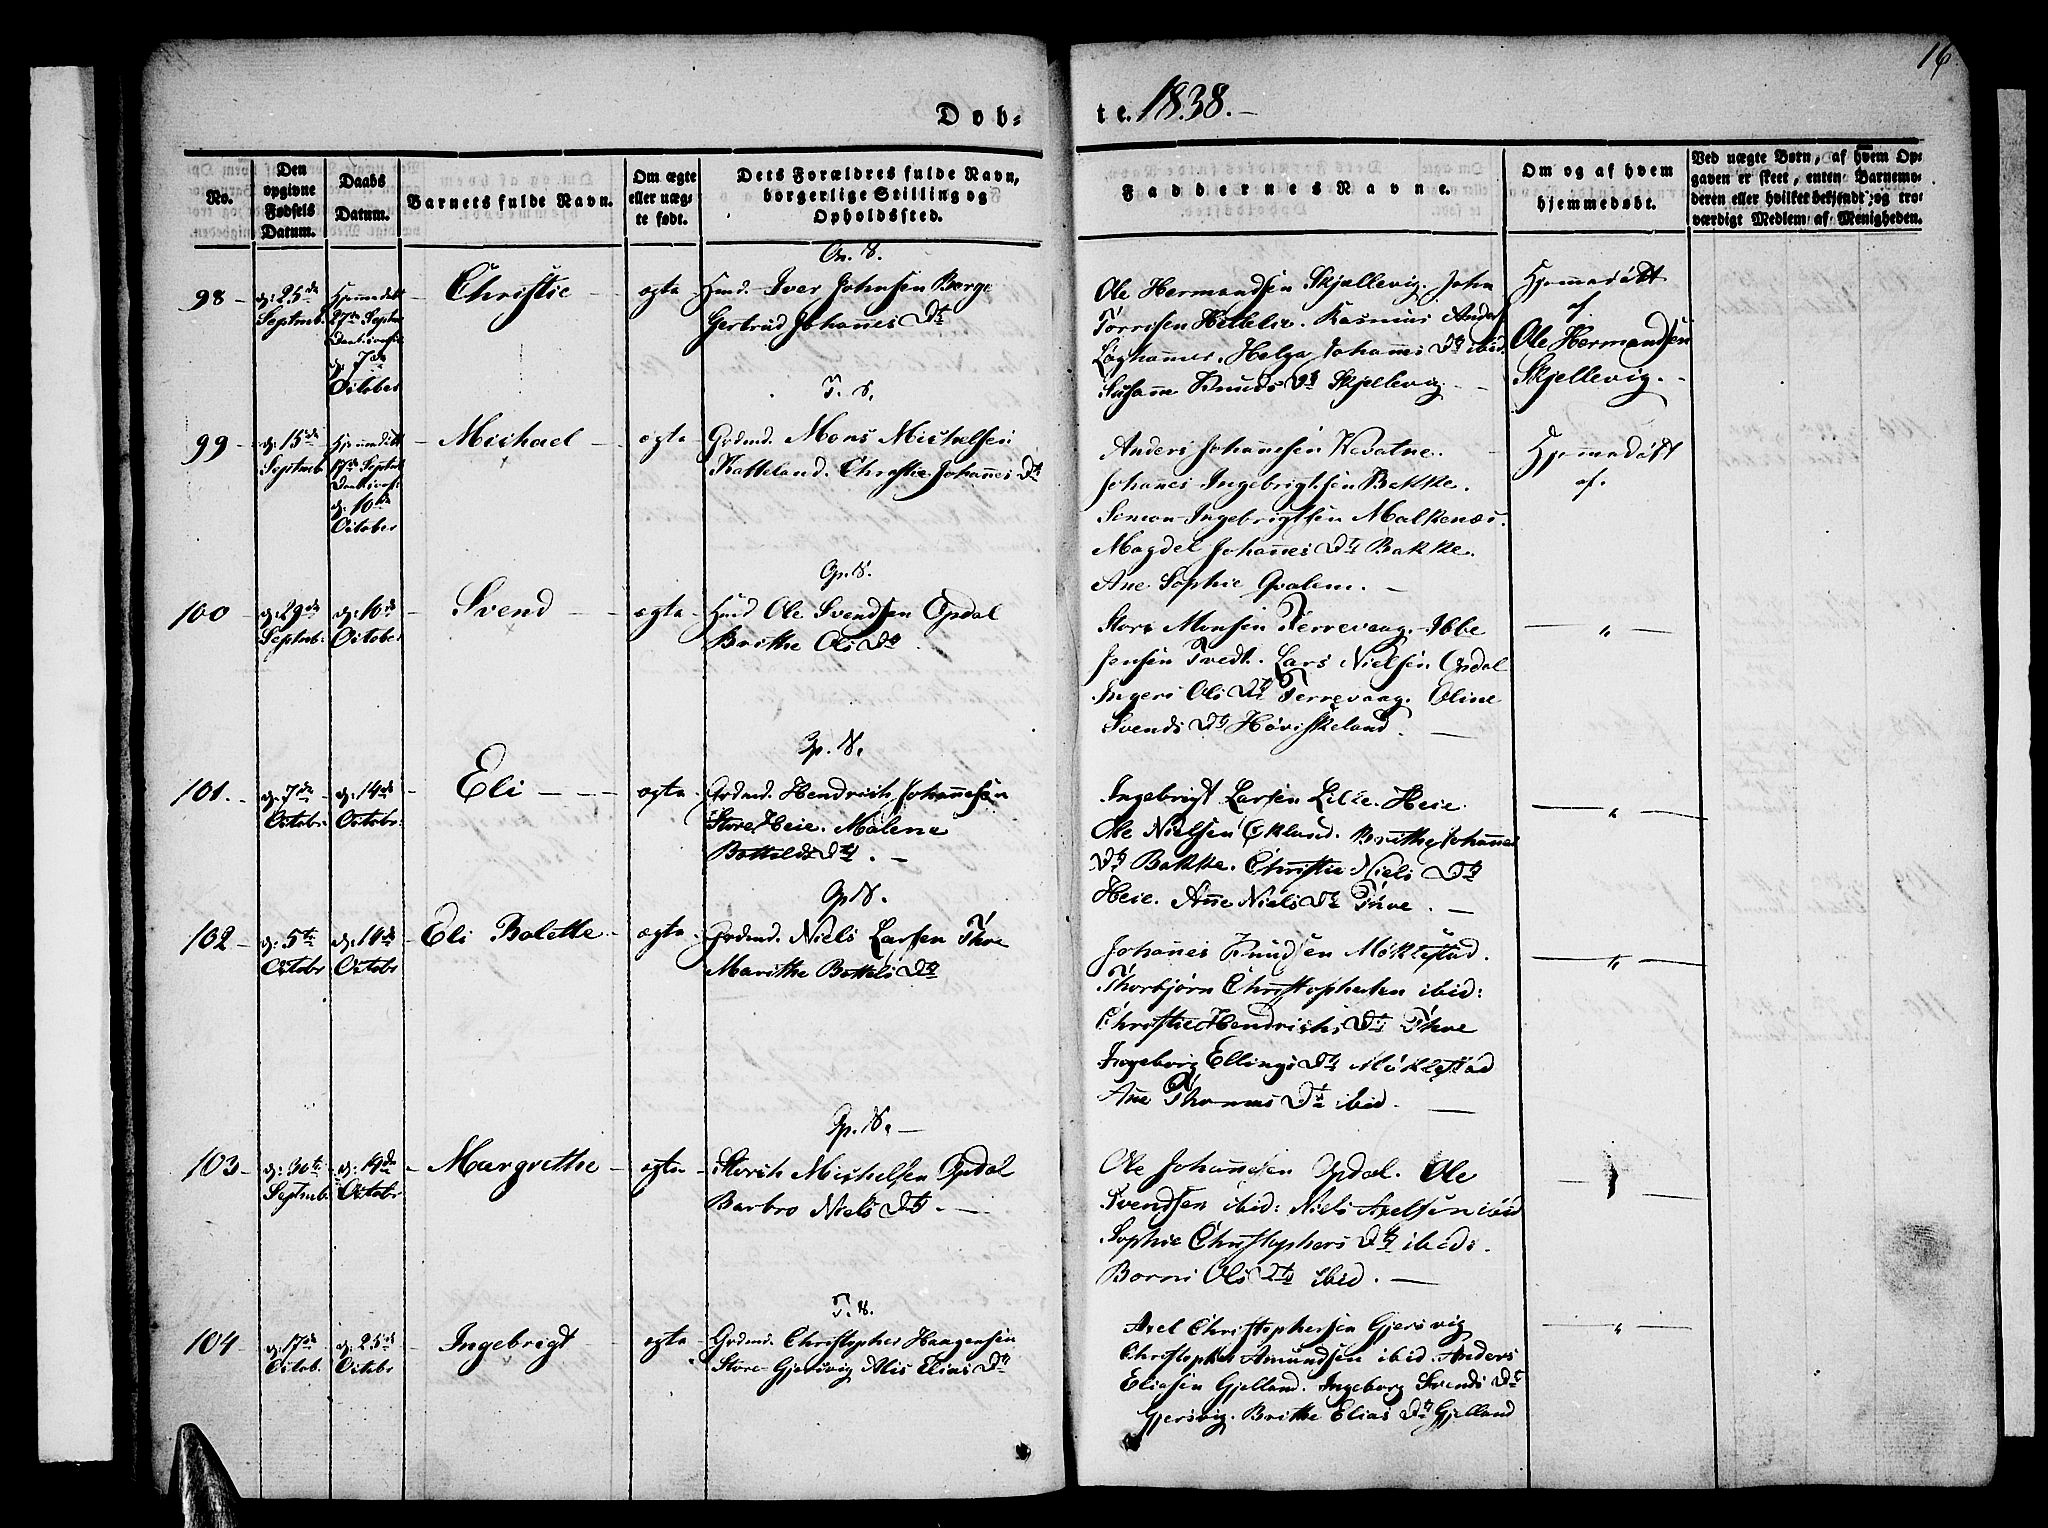 16
Døb-
te. 1838.
No.
Den opgivne Fødsels Datum.
Daabs Datum.
Barnets fulde Navn.
Om ægte eller uægte født.
Dets Forældres fulde Navn, borgerlige Stilling og Opholdssted.
Faddernes Navne.
Om og af hvem hjemmedøbt.
Ved uægte Børn, af hvem Opgaven er skeet, enten Barnemoderen eller hvilket bekjendt og troværdigt Medlem af Menigheden.
98
d: 25de
Septmb.
Hjemmedøbt
27de Septmb
d: 7de
October
Christie
ægte
Huusmd. Iver Johnsen Berge
Gertrud Johannes Dtr
Ole Hermandsen Skjellevig. John
Torrisen Hettelie. Rasmus Anders
Løghammer. Helga Johannes Dtr ibid.
Susanne Knuds Dtr Skjellevig
Hjemmedøbt
af
Ole Hermandsen
Skjellevig.
T. S.
99
d: 15de
Septmb
Hjemmedøbt
17de Septmb
d: 10de
October
Michael
ægte
Grdmd. Mons Michelsen
Katteland. Christie Johannes Dtr
Anders Johannesen Revatne.
Johannes Ingebrigtsen Bakke.
Simon Ingebrigtsen Malkenæs.
Magdel Johannes Dtr Bakke.
Ane Sophie Qvalem.
Hjemmedøbt
af.
Op. S.
100
d: 29de
Septmb.
d: 10de
October
Svend
ægte
Huusmd Ole Svendsen Opdal
Brithe Ols Dtr
Monsen Terrevaag. Ibbe
Jensen Tvedt. Lars Nielsen Opdal
Ingeri Ols Dtr Terrevaag. Oline
Svends Dtr Høviskeland.
"
Op. S.
101.
d: 7de
Octobr.
d: 14de
Octobr.
Eli
ægte
Grdmd. Hendrich Johannesen
Store Heie. Malene
Bottelds Dtr.
Ingebrigt Larsen Lille Heie.
Ole Nielsen Økland. Brithe Johannes
Dtr Bakke. Christie Niels Dtr
Heie. Anne Niels Dtr Thve.
"
Op S.
102
d: 5te
Octobr
d: 14de
Octobr
Eli Bolette
ægte
Grdmd. Niels Larsen Thve
Marithe Bottels Dtr
Johannes Knudsen Møklestad.
Thorbjørn Christophersen ibid:
Christie Hendrichs Dtr Thve
Ingeborg Ellings Dtr Møklestad
Ane Thomas Dtr ibid.
"
Op. S.
103
d: 30te
Septmb.
d: 19de
Octobr
Margrethe
ægte
Michelsen Opdal
Barbro Niels Dtr.
Ole Johannesen Opdal. Ole
Svendsen ibid: Niels Axelsen ibid
Sophie Christophers Dtr ibid.
Borni Ols Dtr ibid.
T. S.
104
d: 17de
Octob.
d: 25de
Octobr
Ingebrigt
ægte
Grdmd. Christopher Haagensen
Store Gjersvig Alis Elias Dtr
Axel Christophersen Gjersvig
Christopher Amundsen ibid. Anders
Eliasen Gjelland. Ingeborg Svends Dtr
Gjersvig. Brithe Elias Dtr Gjelland
"